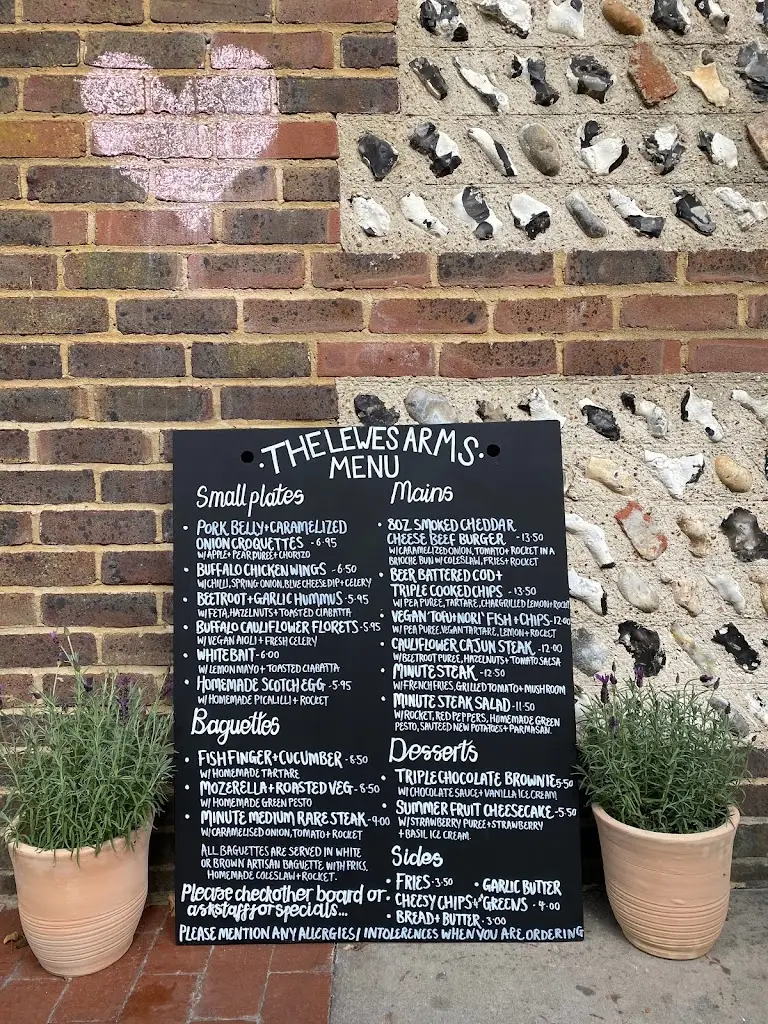 THE LEWES ARMS
MENU
Small plates
PORK BELLY + CARAMELIZED
ONION CROQUETTES - 6.95
W/ APPLE + PEAR PUREE + CHORIZO
BUFFALO CHICKEN WINGS - 6.50
W/ CHILLI, SPRING ONION, BLUE CHEESE DIP + CELERY
BEETROOT + GARLIC HUMMUS - 5.95
W/ FETA, HAZELNUTS + TOASTED CIABATTA
BUFFALO CAULIFLOWER FLORETS - 5.95
W/ VEGAN AIOLI + FRESH CELERY
WHITEBAIT - 6.00
W/ LEMON MAYO + TOASTED CIABATTA
HOMEMADE SCOTCH EGG - 5.95
W/ HOMEMADE PICALILLI + ROCKET
Baguettes
FISHFINGER + CUCUMBER - 8.50
W/ HOMEMADE TARTARE
MOZERELLA + ROASTED VEG - 8.50
W/ HOMEMADE GREEN PESTO
MINUTE MEDIUM RARE STEAK - 9.00
W/ CARAMELISED ONION, TOMATO + ROCKET
ALL BAGUETTES ARE SERVED IN WHITE
OR BROWN ARTISAN BAGUETTE WITH FRIES,
HOMEMADE COLESLAW + ROCKET.
Please check other board or
ask staff for specials...
Mains
8OZ SMOKED CHEDDAR
CHEESE BEEF BURGER - 13.50
W/ CARAMELIZED ONION, TOMATO + ROCKET IN A
BRIOCHE BUN W/ COLESLAW, FRIES + ROCKET
BEER BATTERED COD +
TRIPLE COOKED CHIPS - 13.50
W/ PEA PUREE, TARTARE, CHARGRILLED LEMON + ROCKET
VEGAN 'TOFU + NORI' FISH + CHIPS - 12.00
W/ PEA PUREE, VEGAN TARTARE, LEMON + ROCKET
CAULIFLOWER CAJUN STEAK - 12.00
W/ BEETROOT PUREE, HAZELNUTS + TOMATO SALSA
MINUTE STEAK - 12.50
W/ FRENCH FRIES, GRILLED TOMATO + MUSHROOM
MINUTE STEAK SALAD - 11.50
W/ ROCKET, RED PEPPERS, HOMEMADE GREEN
PESTO, SAUTEED NEW POTATOES + PARMASAN.
Desserts
TRIPLE CHOCOLATE BROWNIE 5.50
W/ CHOCOLATE SAUCE + VANILLA ICE CREAM
SUMMER FRUIT CHEESECAKE - 5.50
W/ STRAWBERRY PUREE + STRAWBERRY
+ BASIL ICE CREAM.
Sides
FRIES - 3.50
CHEESY CHIPS - 4
BREAD + BUTTER - 3.00
GARLIC BUTTER
GREENS - 4.00
PLEASE MENTION ANY ALLERGIES / INTOLERENCES WHEN YOU ARE ORDERING